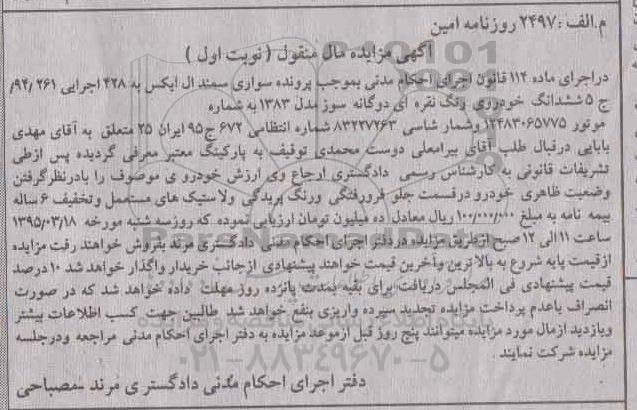 م.الف: ۲۴۹۷ روزنامه امین
آگهی مزایده مال منقول ( نوبت اول )
دراجرای ماده ۱۱۴ قانون اجرای احکام مدنی بموجب پرونده سواری سمند ال ایکس به ۴۲۸ اجرایی ۲۶۱ /۹۴/
ج ۵ ششدانگ خودروی رنگ نقره ای دوگانه سوز مدل ۱۳۸۳ به شماره
موتور ۱۲۴۸۳۰۶۵۷۷۵ وشمار شاسی ۸۳۲۲۷۲۶۳ شماره انتظامی ۶۷۲ ج۹۵ ایران ۲۵ متعلق به آقای مهدی
بابایی درقبال طلب آقای بیرامعلی دوست محمدی توقیف به پارکینگ معتبر معرفی گردیده پس ازطی
تشریفات قانونی به کارشناس رسمی دادگستری ارجاع وی ارزش خودرو ی موصوف را بادرنظرگرفتن
وضعیت ظاهری خودرو درقسمت جلو فرورفتگی ورنگ پریدگی ولاستیک های مستعمل وتخفیف ۶ ساله
بیمه نامه به مبلغ ۱۰۰/۰۰۰/۰۰۰ ریال معادل ده میلیون تومان ارزیابی نموده که روزسه شنبه مورخه ۱۳۹۵/۰۳/۱۸
ساعت ۱۱ الی ۱۲ صبح ازطریق مزایده دردفتر اجرای احکام مدنی دادگستری مرند بفروش خواهند رفت مزایده
ازقیمت پایه شروع به بالاترین وآخرین قیمت خواهند پیشنهادی ازجانب خریدار واگذار خواهد شد ۱۰ درصد
قیمت پیشنهادی فی المجلس دریافت برای بقیه بمدت پانزده روز مهلت داده خواهد شد که در صورت
انصراف یاعدم پرداخت مزایده تجدید سپرده واریزی بنفع خواهد شد طالبین جهت کسب اطلاعات بیشتر
وبازدید ازمال مورد مزایده میتوانند پنج روز قبل ازموعد مزایده به دفتر اجرای احکام مدنی مراجعه ودرجلسه
مزایده شرکت نمایند
دفتر اجرای احکام مدنی دادگستری مرند -مصباحی
ParsNamadData
۰۲۱-۸۸۳۴۹۶۷۰-۵